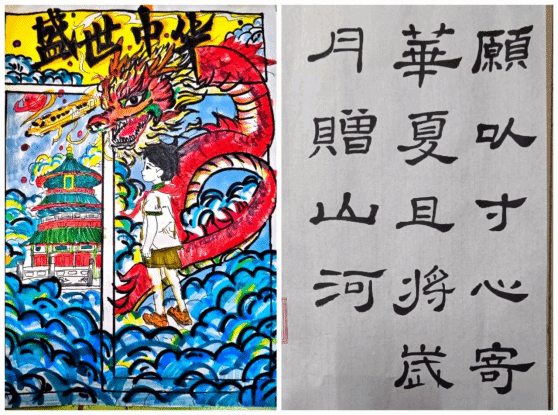 盛世中华
願㕥寸心寄
華夏且將歲
月贈山河